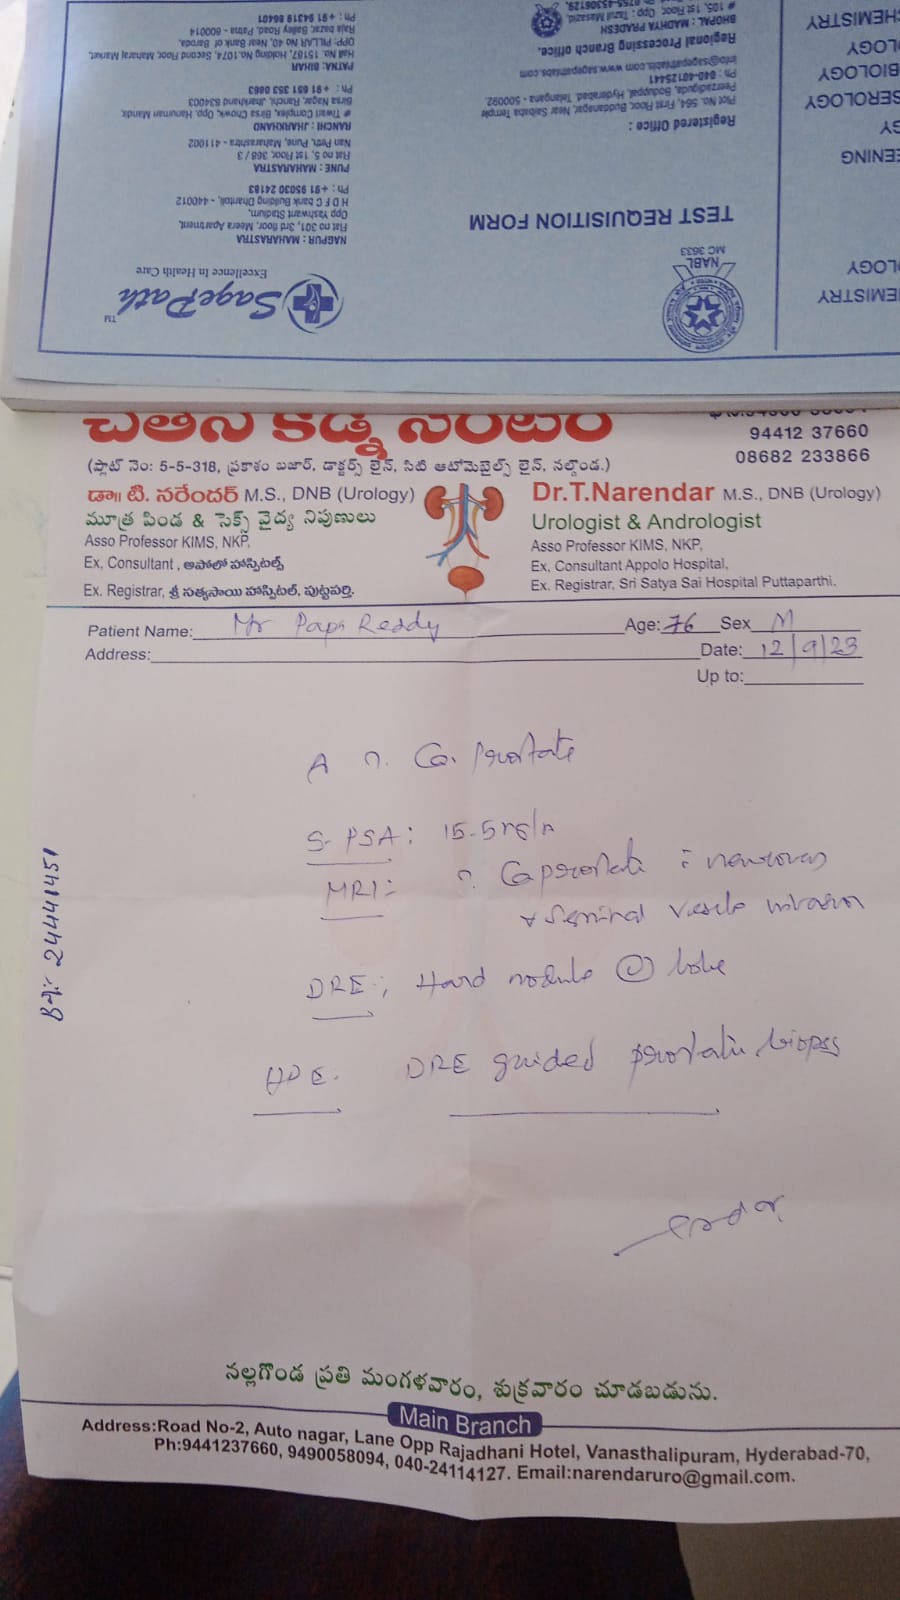 CHEMISTRY
LOGY
BIOLOGY
SEROLOGY
GY
EENING
LOGY
EMISTRY
# 105, 1st Floor, Opp : Tazul Masazid,
BHOPAL : MADHYA PRADESH
Regional Processing Branch office.
info@sagepathlabs.com www.sagepathlabs.com
Ph : 040-40125441
Peerzadiguda, Boduppal, Hyderabad, Telangana - 500092.
Plot No. 564, First Floor, Buddanagar, Near Saibaba Temple
Registered Office :
TEST REQUISITION FORM
MC 3633
NABL
Ph : +91 94319 86401
Raja bazar, Bailey Road, Patna - 800014
OPP: PILLAR No 40, Near Bank of Baroda,
Hall No. 15187, Holding No.1074, Second Floor, Maharaj Market,
PATNA: BIHAR
Ph : +91 651 353 0863
Birsa Nagar, Ranchi, Jharkhand 834003
# Tiwari Complex, Birsa Chowk, Opp. Hanuman Mandir,
RANCHI : JHARKHAND
Nan Peth, Pune, Maharashtra - 411002
Flat no 5, 1st Floor, 368 / 3
PUNE : MAHARASTRA
Ph : +91 95030 24183
H D F C bank Building Dhantoli, - 440012
Opp Yashwant Stadium,
Flat no 301, 3rd floor, Meera Apartment,
NAGPUR : MAHARASTRA
Excellence In Health Care
SagePath TM
94412 37660
08682 233866
(ప్లాట్ నెం: 5-5-318, ప్రకాశం బజార్, డాక్టర్స్ లైన్, సిటీ ఆటోమొబైల్స్ లైన్, నల్గొండ.)
డా॥ టి. నరేందర్ M.S., DNB (Urology)
మూత్ర పిండ & సెక్స్ వైద్య నిపుణులు
Asso Professor KIMS, NKP,
Ex, Consultant , అపోలో హాస్పిటల్స్
Ex. Registrar, శ్రీ సత్యసాయి హాస్పిటల్, పుట్టపర్తి.
Dr.T.Narendar M.S., DNB (Urology)
Urologist & Andrologist
Asso Professor KIMS, NKP,
Ex, Consultant Appolo Hospital,
Ex. Registrar, Sri Satya Sai Hospital Puttaparthi.
Patient Name: Mr Papi Reddy Age: 76 Sex M
Address: Date: 12/9/23
Up to:
A ? Ca. prostate
S. PSA: 15.5
MRI: ? Ca prostate
Seminal vesicle invasion
DRE: Hard nodule lobe
HPE. DRE guided prostatic biopsy
24441451
నల్లగొండ ప్రతి మంగళవారం, శుక్రవారం చూడబడును.
Main Branch
Address:Road No-2, Auto nagar, Lane Opp Rajadhani Hotel, Vanasthalipuram, Hyderabad-70,
Ph:9441237660, 9490058094, 040-24114127. Email:narendaruro@gmail.com.